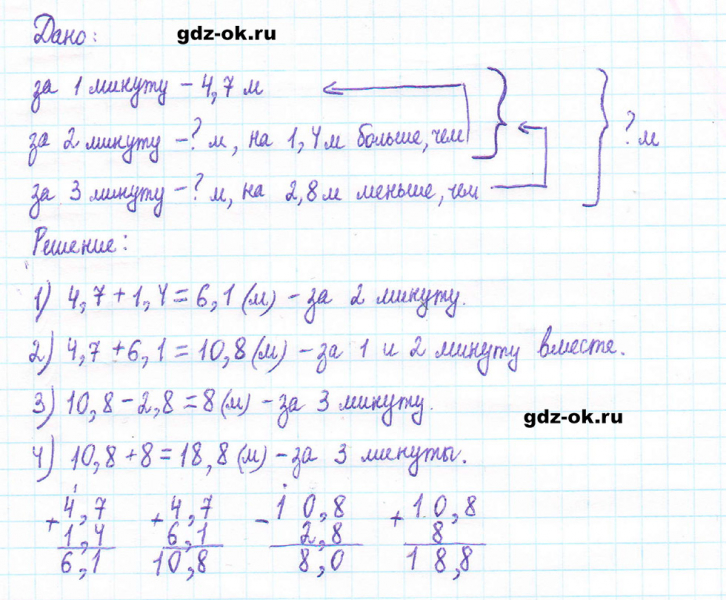 Дано: gdz-ok.ru
за 1 минуту - 4,7 м
за 2 минуту -? м, на 1,4 м больше, чем
? м
за 3 минуту -? м, на 2,8 м меньше, чем
Решение:
1) 4,7 + 1,4 = 6,1 (м) - за 2 минуту.
2) 4,7 + 6,1 = 10,8 (м) - за 1 и 2 минуту вместе.
3) 10,8 - 2,8 = 8 (м) - за 3 минуту.
gdz-ok.ru
4) 10,8 + 8 = 18,8 (м) - за 3 минуты.
1
+ 4,7 + 4,7 - 10,8 + 10,8
1,4 6,1 2,8 8
6,1 10,8 8,0 18,8